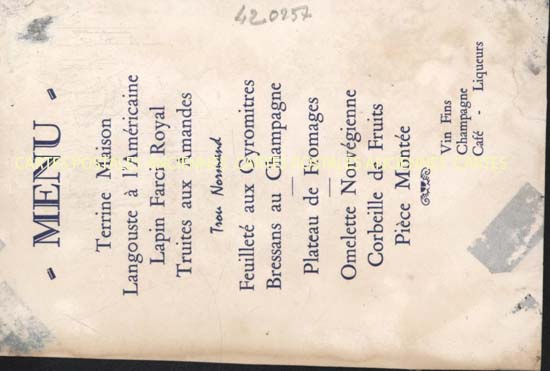 42.0257
- MENU -
Terrine Maison
Langouste à l'Américaine
Lapin Farci Royal
Truites aux Amandes
Trou Normand
Feuilleté aux Gyromitres
Bressans au Champagne
Plateau de Fromages
Omelette Norvégienne
Corbeille de Fruits
Pièce Montée
Vin Fins
Champagne
Café - Liqueurs